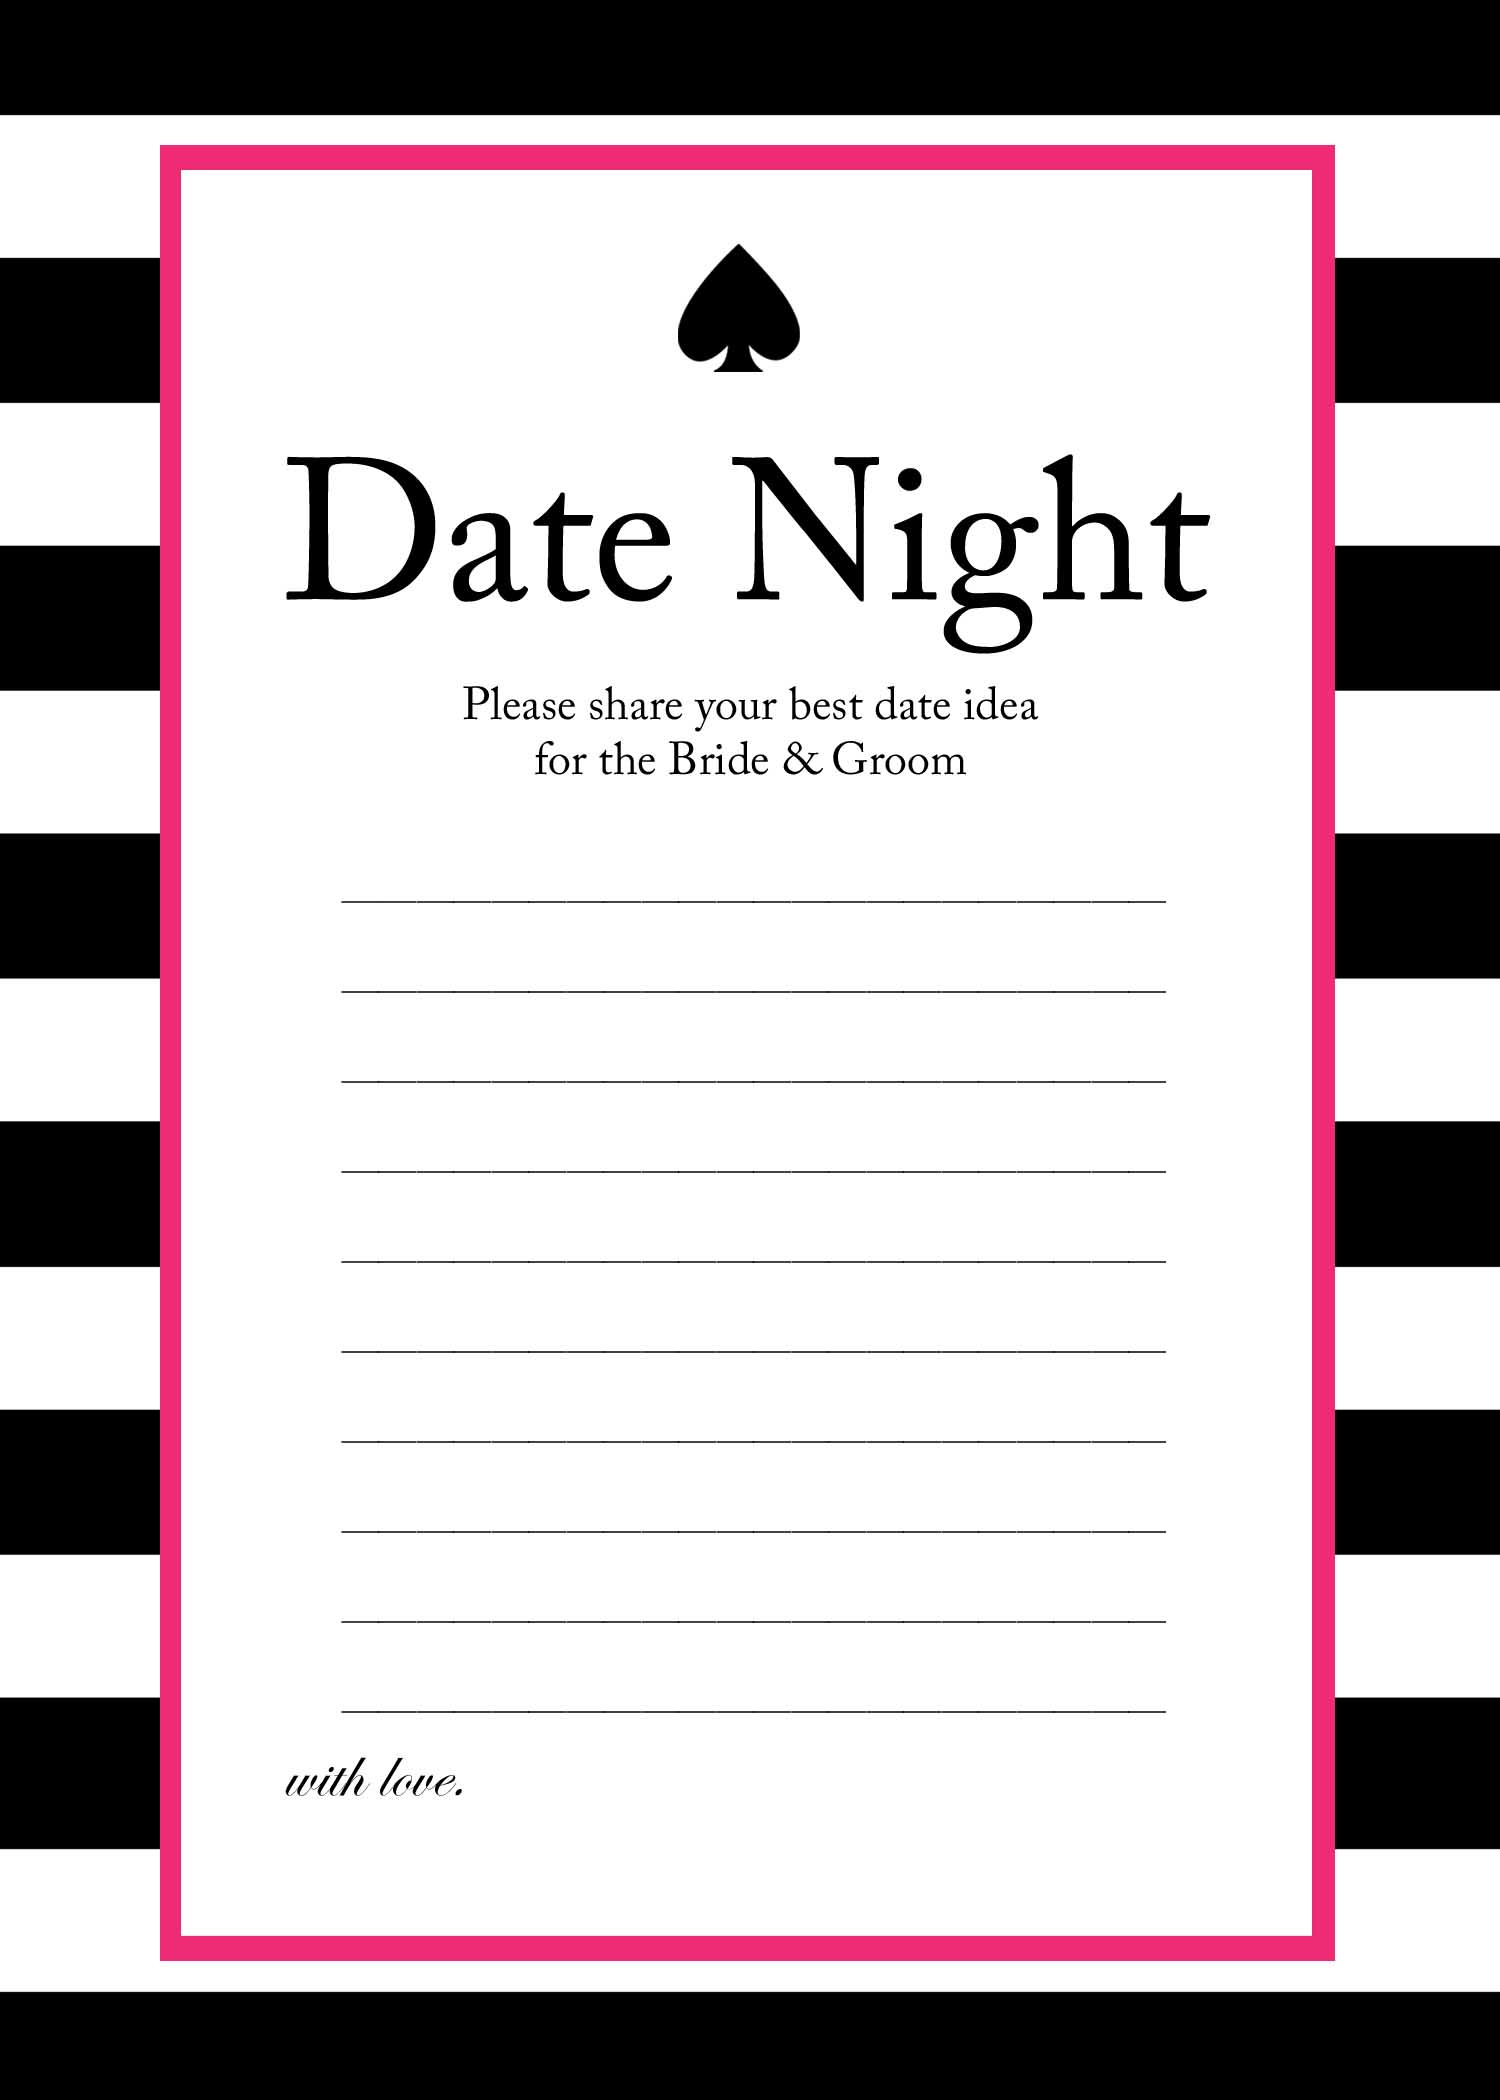 Date Night
Please share your best date idea
for the Bride & Groom
with love.